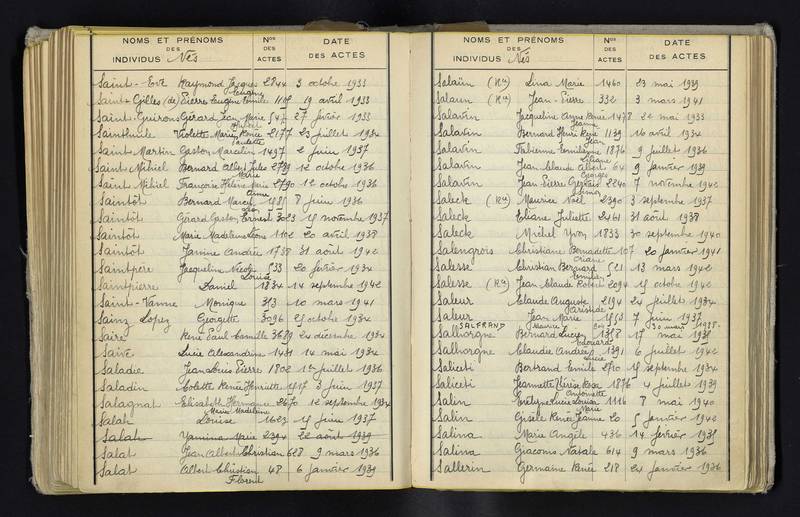 NOMS ET PRÉNOMS DES INDIVIDUS Nés
Nos DES ACTES
DATE DES ACTES
Saint-
Raymond Jacques Eugène 2844 3 octobre 1933
Saint-Gilles (de) Pierre Eugène Emile 19 avril 1933
Saint-Guirons Gérard Jean Marie 547 27 février 1933
Violette Marie Renée Paulette 2177 23 juillet 1934
Saint Martin Gaston Marcelin 1497 2 juin 1937
Saint Mihiel Bernard Albert Jules 2789 12 octobre 1936
Saint Mihiel Françoise Hélène Marie 2790 12 octobre 1936
Saintôt Bernard Marcel 8 juin 1936
Saintôt Gérard Gaston Ernest 3023 15 novembre 1937
Saintôt Marie Madeleine Léone 1102 20 avril 1938
Saintôt Janine Andrée 1738 31 août 1942
Saintpère Jacqueline Nicole Louise 533 20 février 1934
Saintpierre Daniel 1834 14 septembre 1942
Saint-Vanne Monique 313 10 mars 1941
Sainz Lopez Georgette 3096 25 octobre 1934
Saire René Paul Camille 3689 24 décembre 1934
Saive Lucie Alexandrine 1431 14 mai 1934
Saladie Jean Louis Pierre 1802 1er juillet 1936
Saladin Colette Renée Henriette 1517 3 juin 1937
Salagnat Elisabeth Hermane Marie Madeleine 2670 12 septembre 1934
Salah Louise 1623 15 juin 1937
Salah Yamina Marie 2394 22 août 1939
Salat Jean Albert Christian 628 9 mars 1936
Salat Albert Christian Florent 48 6 janvier 1939
NOMS ET PRÉNOMS DES INDIVIDUS Nés
Nos DES ACTES
DATE DES ACTES
Salaün (Ru) Lina Marie 1460 23 mai 1939
Salaün (Ru) Jean-Pierre 332 3 mars 1941
Salavin Jacqueline Anne Renée Jeanne 1478 22 mai 1933
Salavin Bernard Henri René Jean 1139 16 avril 1934
Salavin Fabienne Emilienne Liliane 1876 9 juillet 1936
Salavin Jean Claude Albert Georges 64 9 janvier 1939
Salavin Jean Pierre Gervais 2240 7 novembre 1942
Saleck (Ru) Maurice Noël 2390 3 septembre 1937
Saleck Eliane Juliette 2461 31 août 1938
Saleck Michel Yvon 1833 30 septembre 1940
Salengrois Christiane Bernadette 107 20 janvier 1941
Salesse Christian Bernard 521 13 mars 1942
Salesse (Ru) Jean Claude Robert 2094 15 octobre 1942
Saleur Claude Auguste Aristide 2194 24 juillet 1934
Saleur Jean Marie 7 juin 1937
SALFRAND Maurice 30 mars 1938
Salhorgne Bernard Lucien Edouard 1358 17 mai 1938
Salhorgne Claude Andrée Lucie 1391 6 juillet 1942
Saliceti Bertrand Emile 2710 15 septembre 1934
Saliceti Jeannette Rose Antoinette 1876 4 juillet 1939
Salin Evelyne Lucie Louise Marie 1116 8 mai 1940
Salin Gisèle Renée Jeanne 20 5 janvier 1942
Salina Marie Angèle 436 14 février 1935
Salina Giacomo Natale 614 9 mars 1936
Sallerin Germaine Renée 218 24 janvier 1936